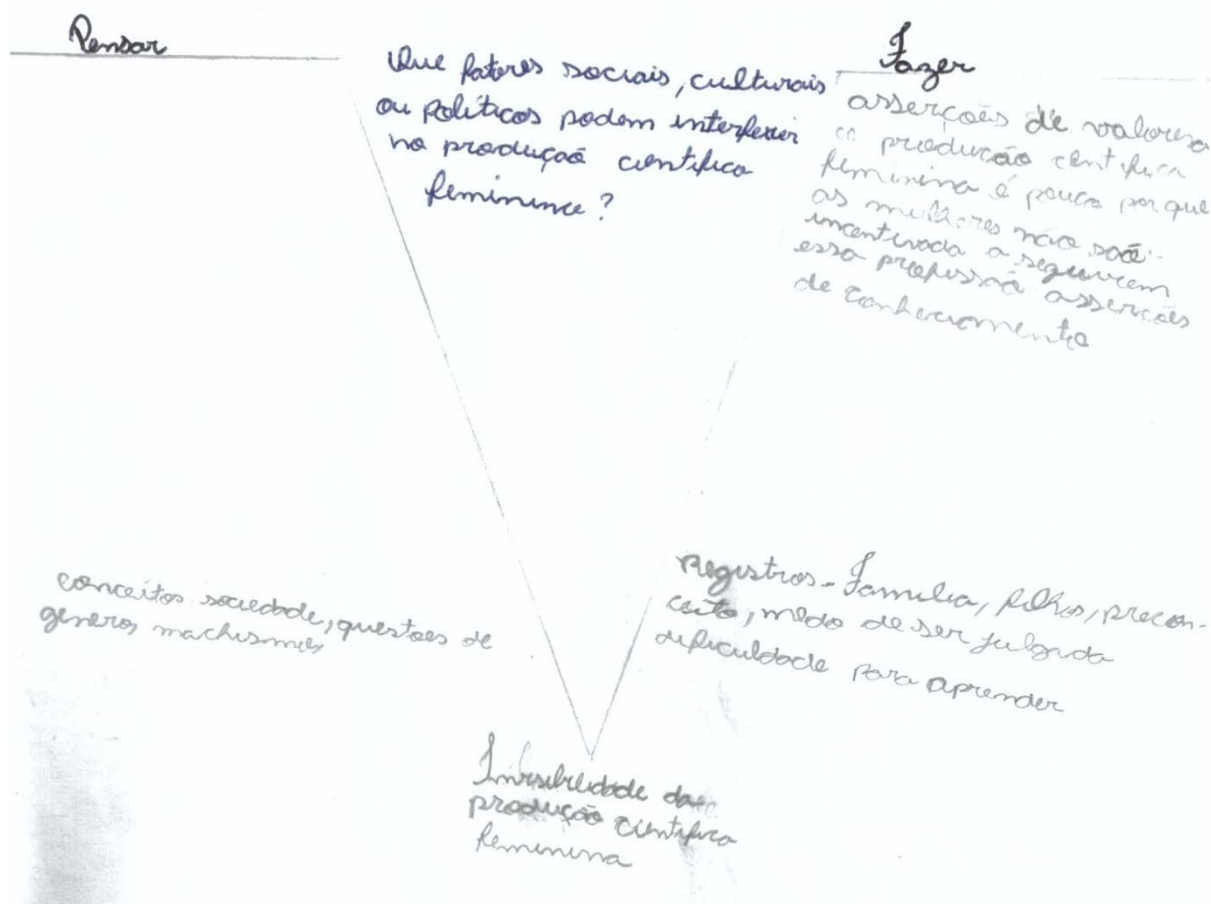 Pensar
Que fatores sociais, culturais
ou políticos podem interferir
na produção científica
feminina?
Fazer
asserções de valores
a produção científica
feminina é pouca porque
as mulheres não são
incentivada a seguirem
essa profissão asserções
de conhecimento
conceitos sociedade, questões de
generos machismo,
Registros - Familia, filhos, precon-
ceito, medo de ser julgada
dificuldade para aprender
Invisibilidade da
produção cientifica
feminina